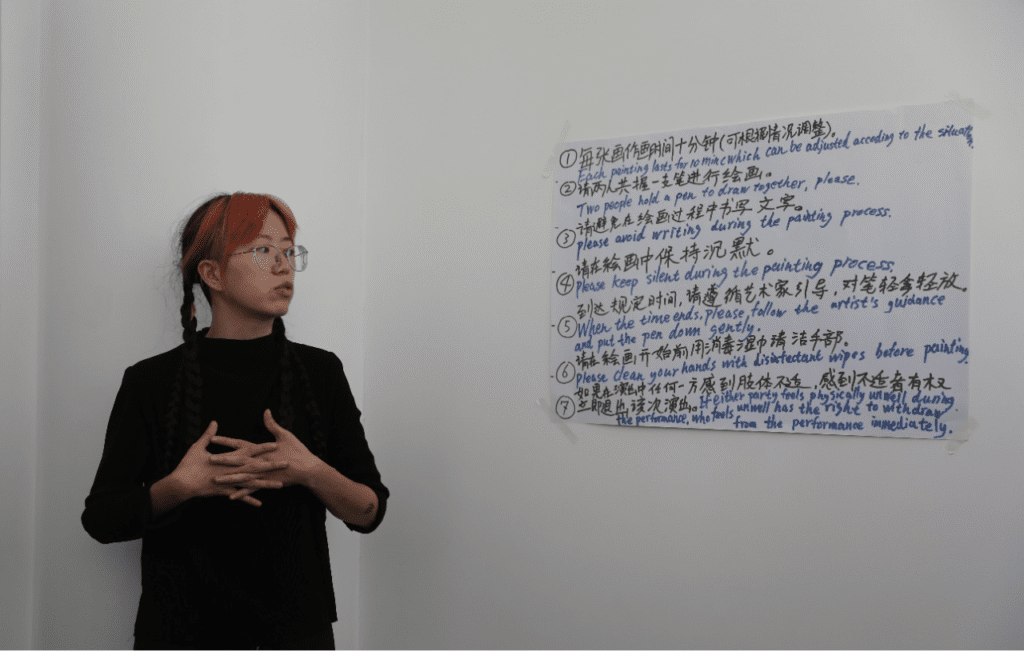 ① 每张画作画时间十分钟(可根据情况调整)。
Each painting lasts for 10 min(which can be adjusted accoding to the situation.
② 请两人共握一支笔进行绘画。
Two people hold a pen to draw together, please.
③ 请避免在绘画过程中书写文字。
please avoid writing during the painting process.
④ 请在绘画中保持沉默。
Please keep silent during the painting process.
⑤ 到达规定时间,请遵循艺术家引导,对笔轻拿轻放。
When the time ends, please follow the artist's guidance
and put the pen down gently.
⑥ 请在绘画开始前用消毒湿巾清洁手部。
Please clean your hands with disinfectant wipes before painting.
⑦ 如果在演出中任何一方感到肢体不适,感到不适者有权
立即退出该次演出。If either party feels physically unwell during
the performance, who feels unwell has the right to withdraw
from the performance immediately.